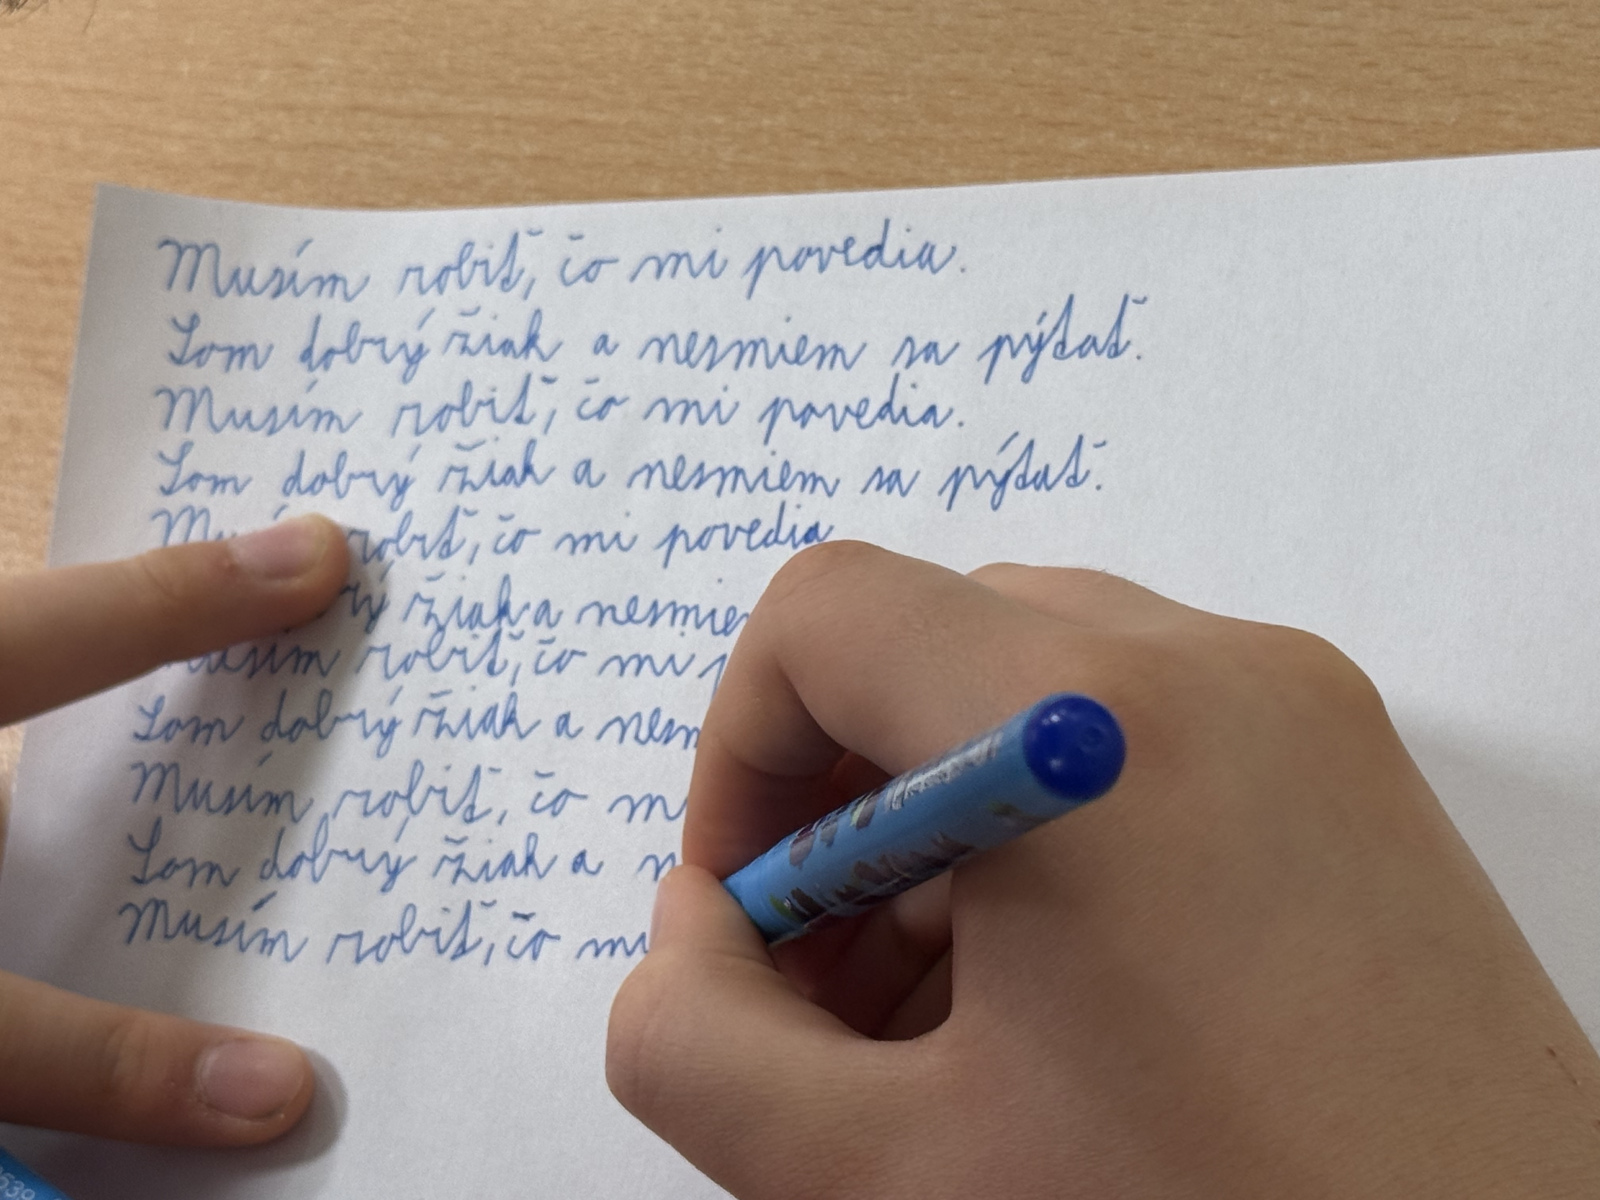 Musím robiť, čo mi povedia.
Som dobrý žiak a nesmiem sa pýtať.
Musím robiť, čo mi povedia.
Som dobrý žiak a nesmiem sa pýtať.
robiť, čo mi povedia
žiak a
Musím robiť, čo mi
Som dobrý žiak a
Musím robiť, čo
Som dobrý žiak a
Musím robiť, čo mi
0539